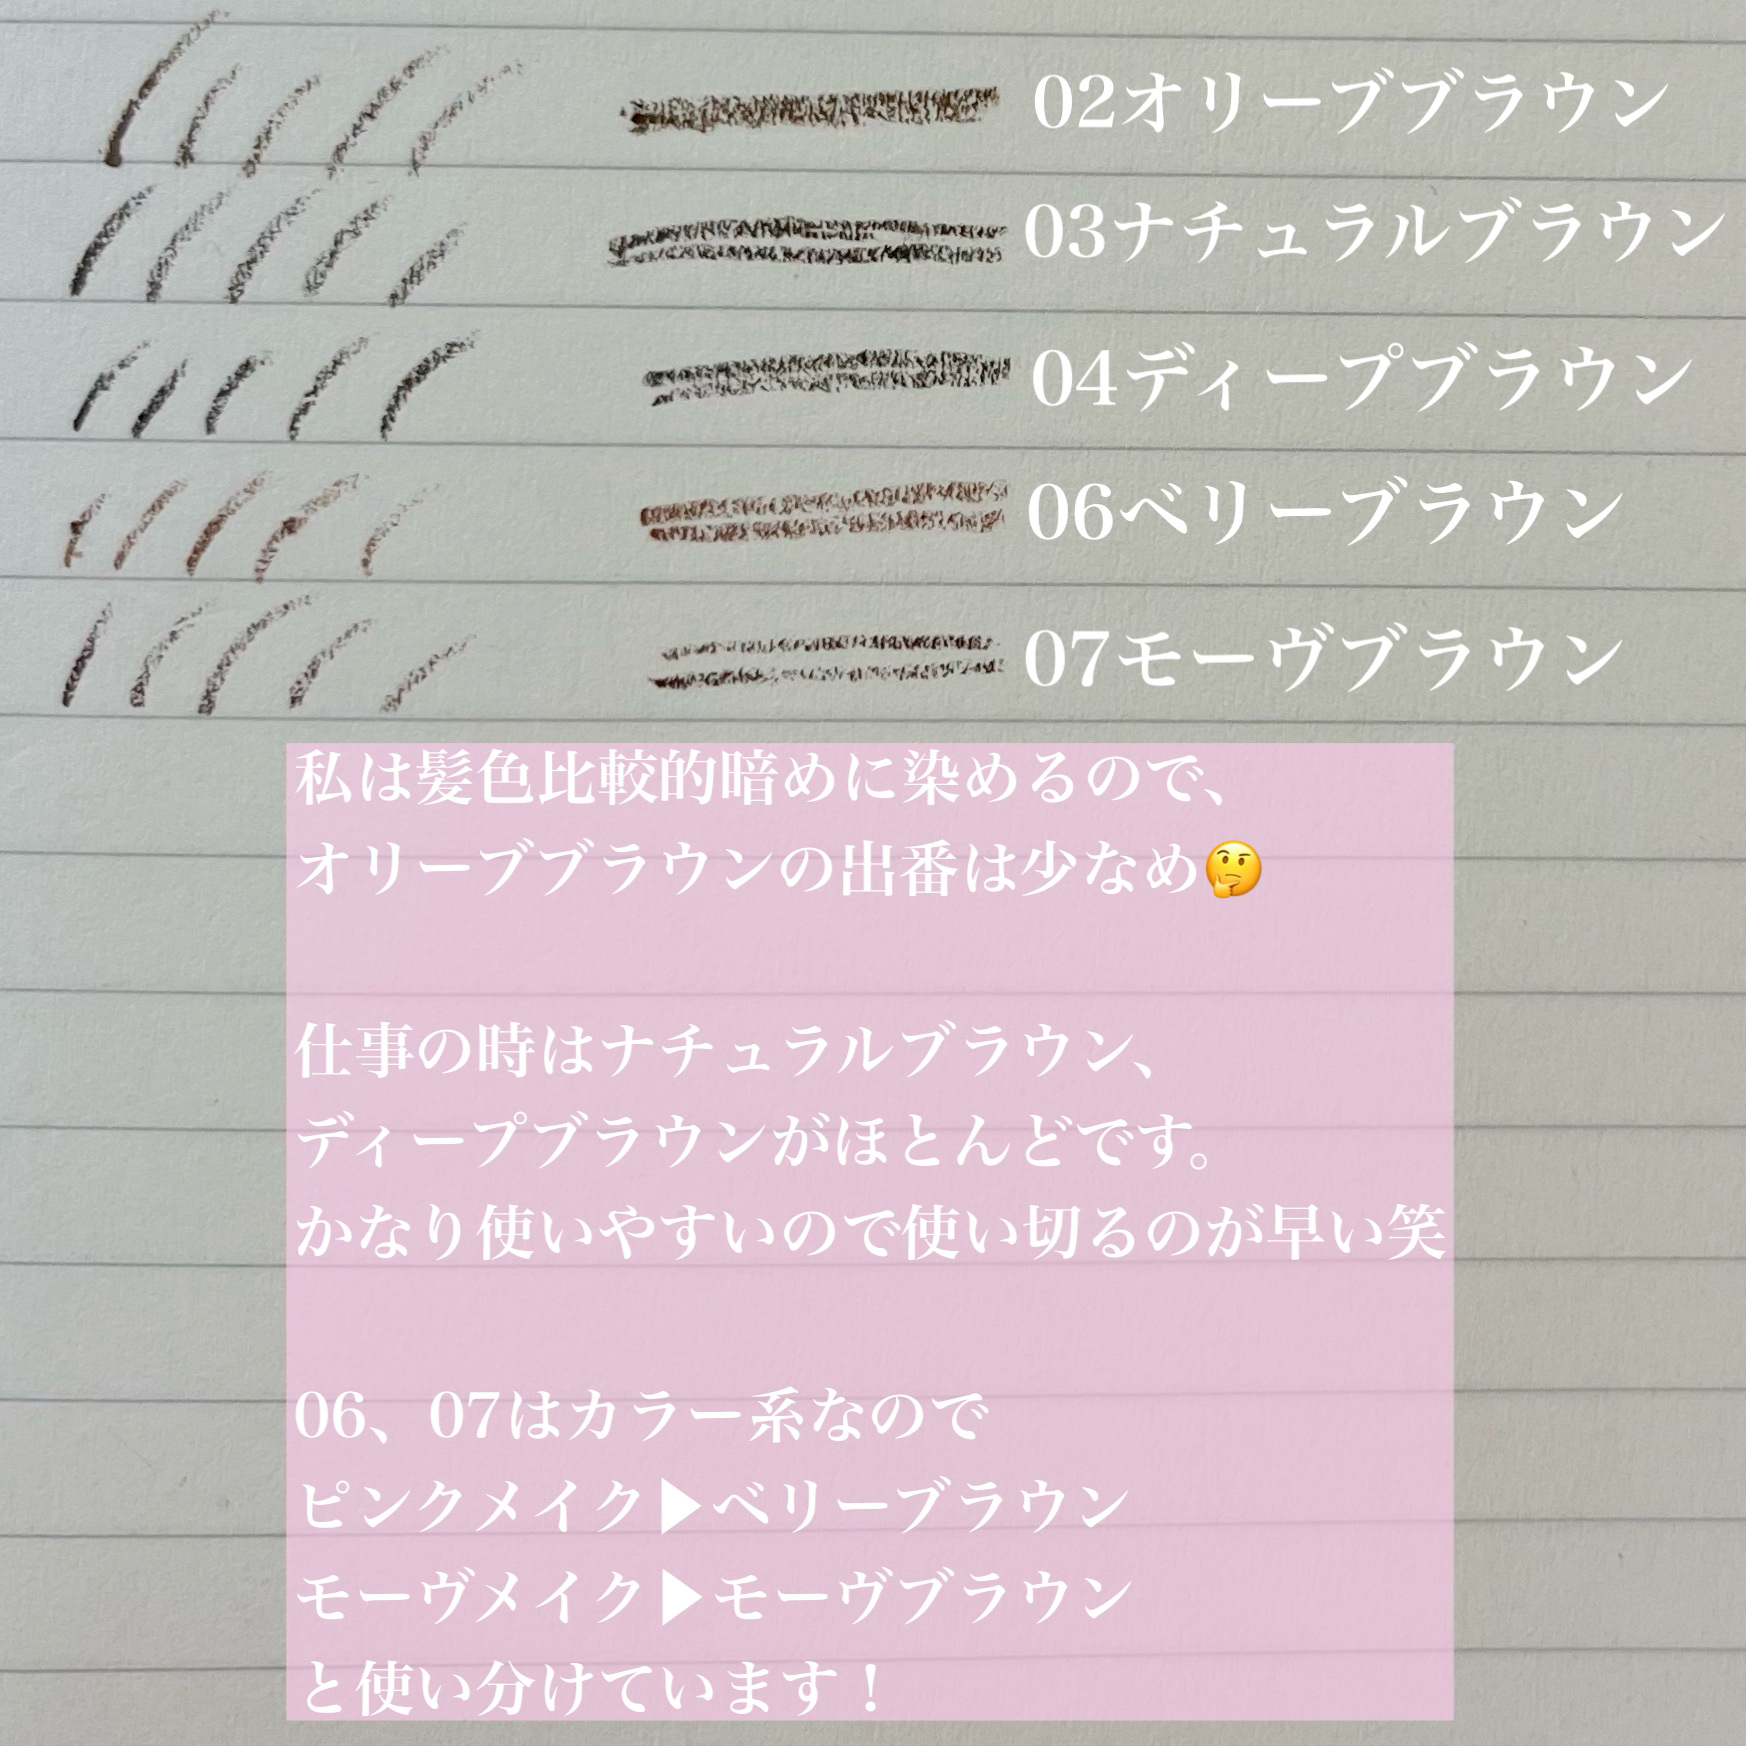 02オリーブブラウン
03ナチュラルブラウン
04ディープブラウン
06ベリーブラウン
07モーヴブラウン
私は髪色比較的暗めに染めるので、
オリーブブラウンの出番は少なめ🤔
仕事の時はナチュラルブラウン、
ディープブラウンがほとんどです。
かなり使いやすいので使い切るのが早い笑
06、07はカラー系なので
ピンクメイク▶ベリーブラウン
モーヴメイク▶モーヴブラウン
と使い分けています！